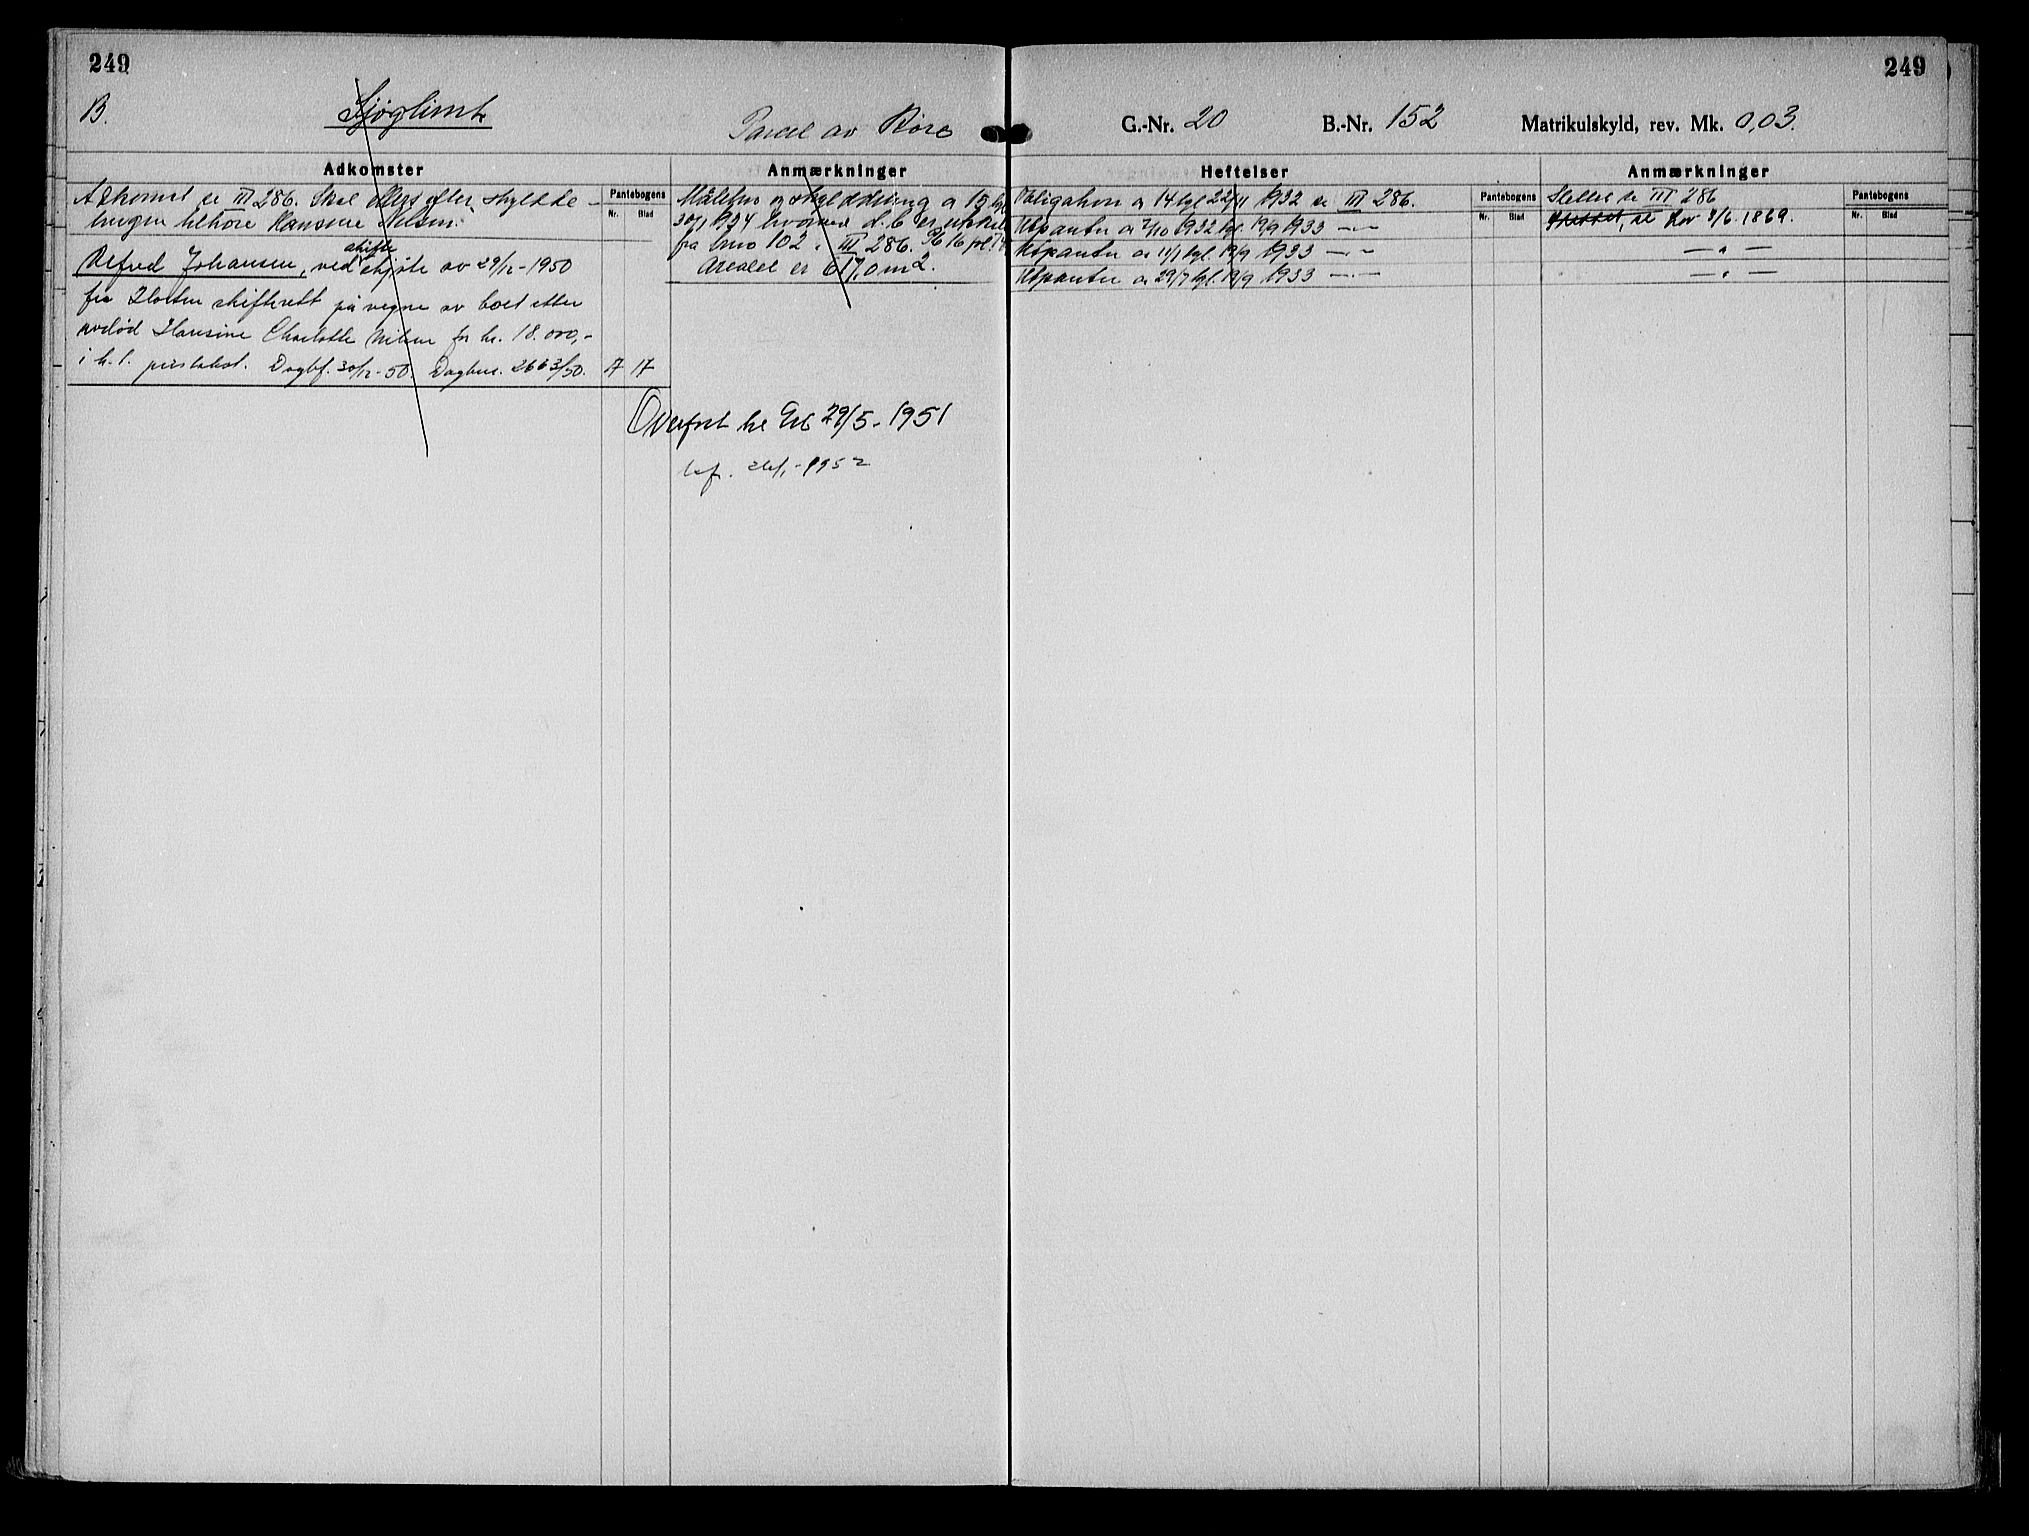 249
249
B.
Sjøglimt
Parcel av Bore
G.-Nr. 20
B.-Nr. 152
Matrikulskyld, rev. Mk. 0,03.
Adkomster
Pantebogens
Nr. Blad
Adkomst se III 286. Skal ellers efter skyldde-
lingen tilhøre Hansine Nilsen.
Alfred Johansen, ved skifte skjøte av 29/12-1950
fra Holten skifterett på vegne av boet etter
avdød Hansine Charlotte Nilsen for kr. 18.000,-
i h.t. Dagbf. 30/12-50. Dagbnr. 2663/50. A 17
Anmærkninger
Målebrev og skylddeling a 19
30/1 1934 hvorved d. b. er utskilt
fra bno 102 i III 286. Pb 16 fol.
Arealet er 617,0 m2.
Overført til 29/5-1951
1952
Heftelser
Pantebogens
Nr. Blad
Obligation a 14 tgl 22/11 1932 se III 286.
Utpantn a 7/10 1932 tgl. 19/9 1933 — " —
Utpantn a 11/1 tgl. 19/9 1933 — " —
Utpantn a 29/7 tgl. 19/9 1933 — " —
Anmærkninger
Pantebogens
Nr. Blad
Slettet se III 286
Slettet, se Lov 9/6. 1869.
— " —
— " —